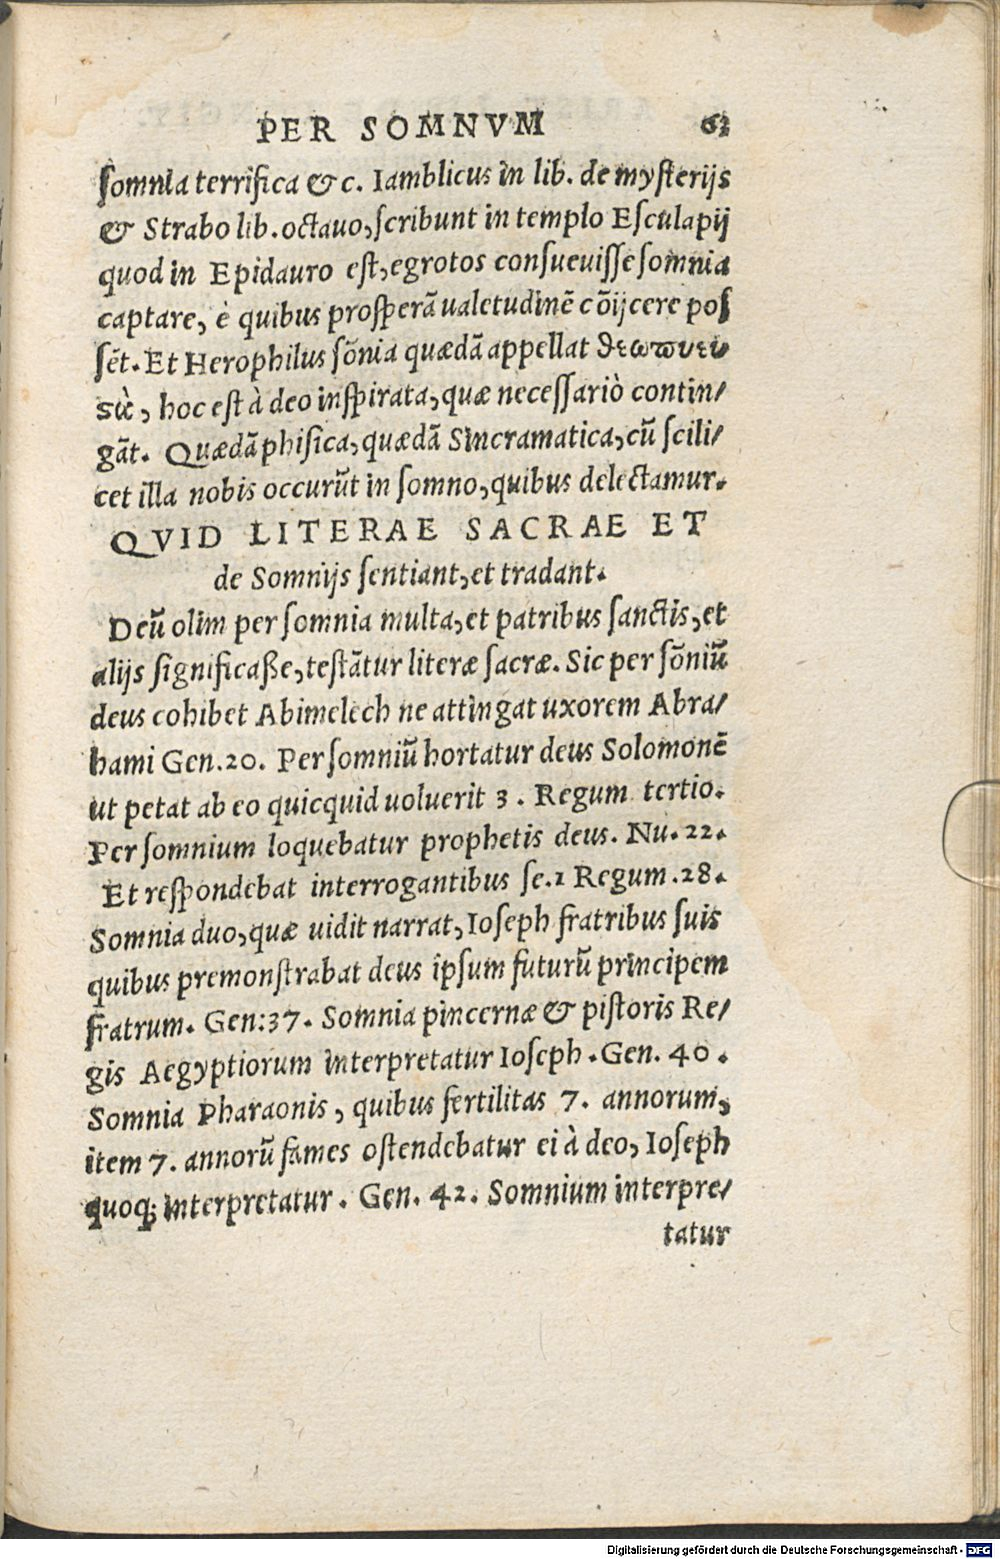 PER SOMNVM 63
ſomnia terrifica & c. Iamblicus in lib. de myſterijs
& Strabo lib. octauo, ſcribunt in templo Eſculapij
quod in Epidauro eſt, egrotos conſueuiſſe ſomnia
captare, è quibus proſperā ualetudinē cōijcere poſ
ſēt. Et Herophilus ſōnia quædā appellat ϑεωπνευ⸗
σὰ, hoc eſt à deo inſpirata, quæ neceſſariò contin⸗
gāt. Quædā phiſica, quædā Sincramatica, cū ſcili⸗
cet illa nobis occurūt in ſomno, quibus delectamur.
QVID LITERAE SACRAE ET
de Somnijs ſentiant, et tradant.
Deū olim per ſomnia multa, et patribus ſanctis, et
alijs ſignificaße, teſtātur literæ ſacræ. Sic per ſōniū
deus cohibet Abimelech ne attingat uxorem Abra⸗
hami Gen. 20. Per ſomniū hortatur deus Solomonē
ut petat ab eo quicquid uoluerit 3. Regum tertio.
Per ſomnium loquebatur prophetis deus. Nu. 22.
Et reſpondebat interrogantibus ſe. 1 Regum. 28.
Somnia duo, quæ uidit narrat, Ioſeph fratribus ſuis
quibus premonſtrabat deus ipſum futurū principem
fratrum. Gen: 37. Somnia pincernæ & piſtoris Re⸗
gis Aegyptiorum interpretatur Ioſeph. Gen. 40.
Somnia Pharaonis, quibus fertilitas 7. annorum,
item 7. annorū fames oſtendebatur ei à deo, Ioſeph
quoq; interpretatur. Gen. 42. Somnium interpre⸗
tatur
Digitalisierung gefördert durch die Deutsche Forschungsgemeinschaft - DFG